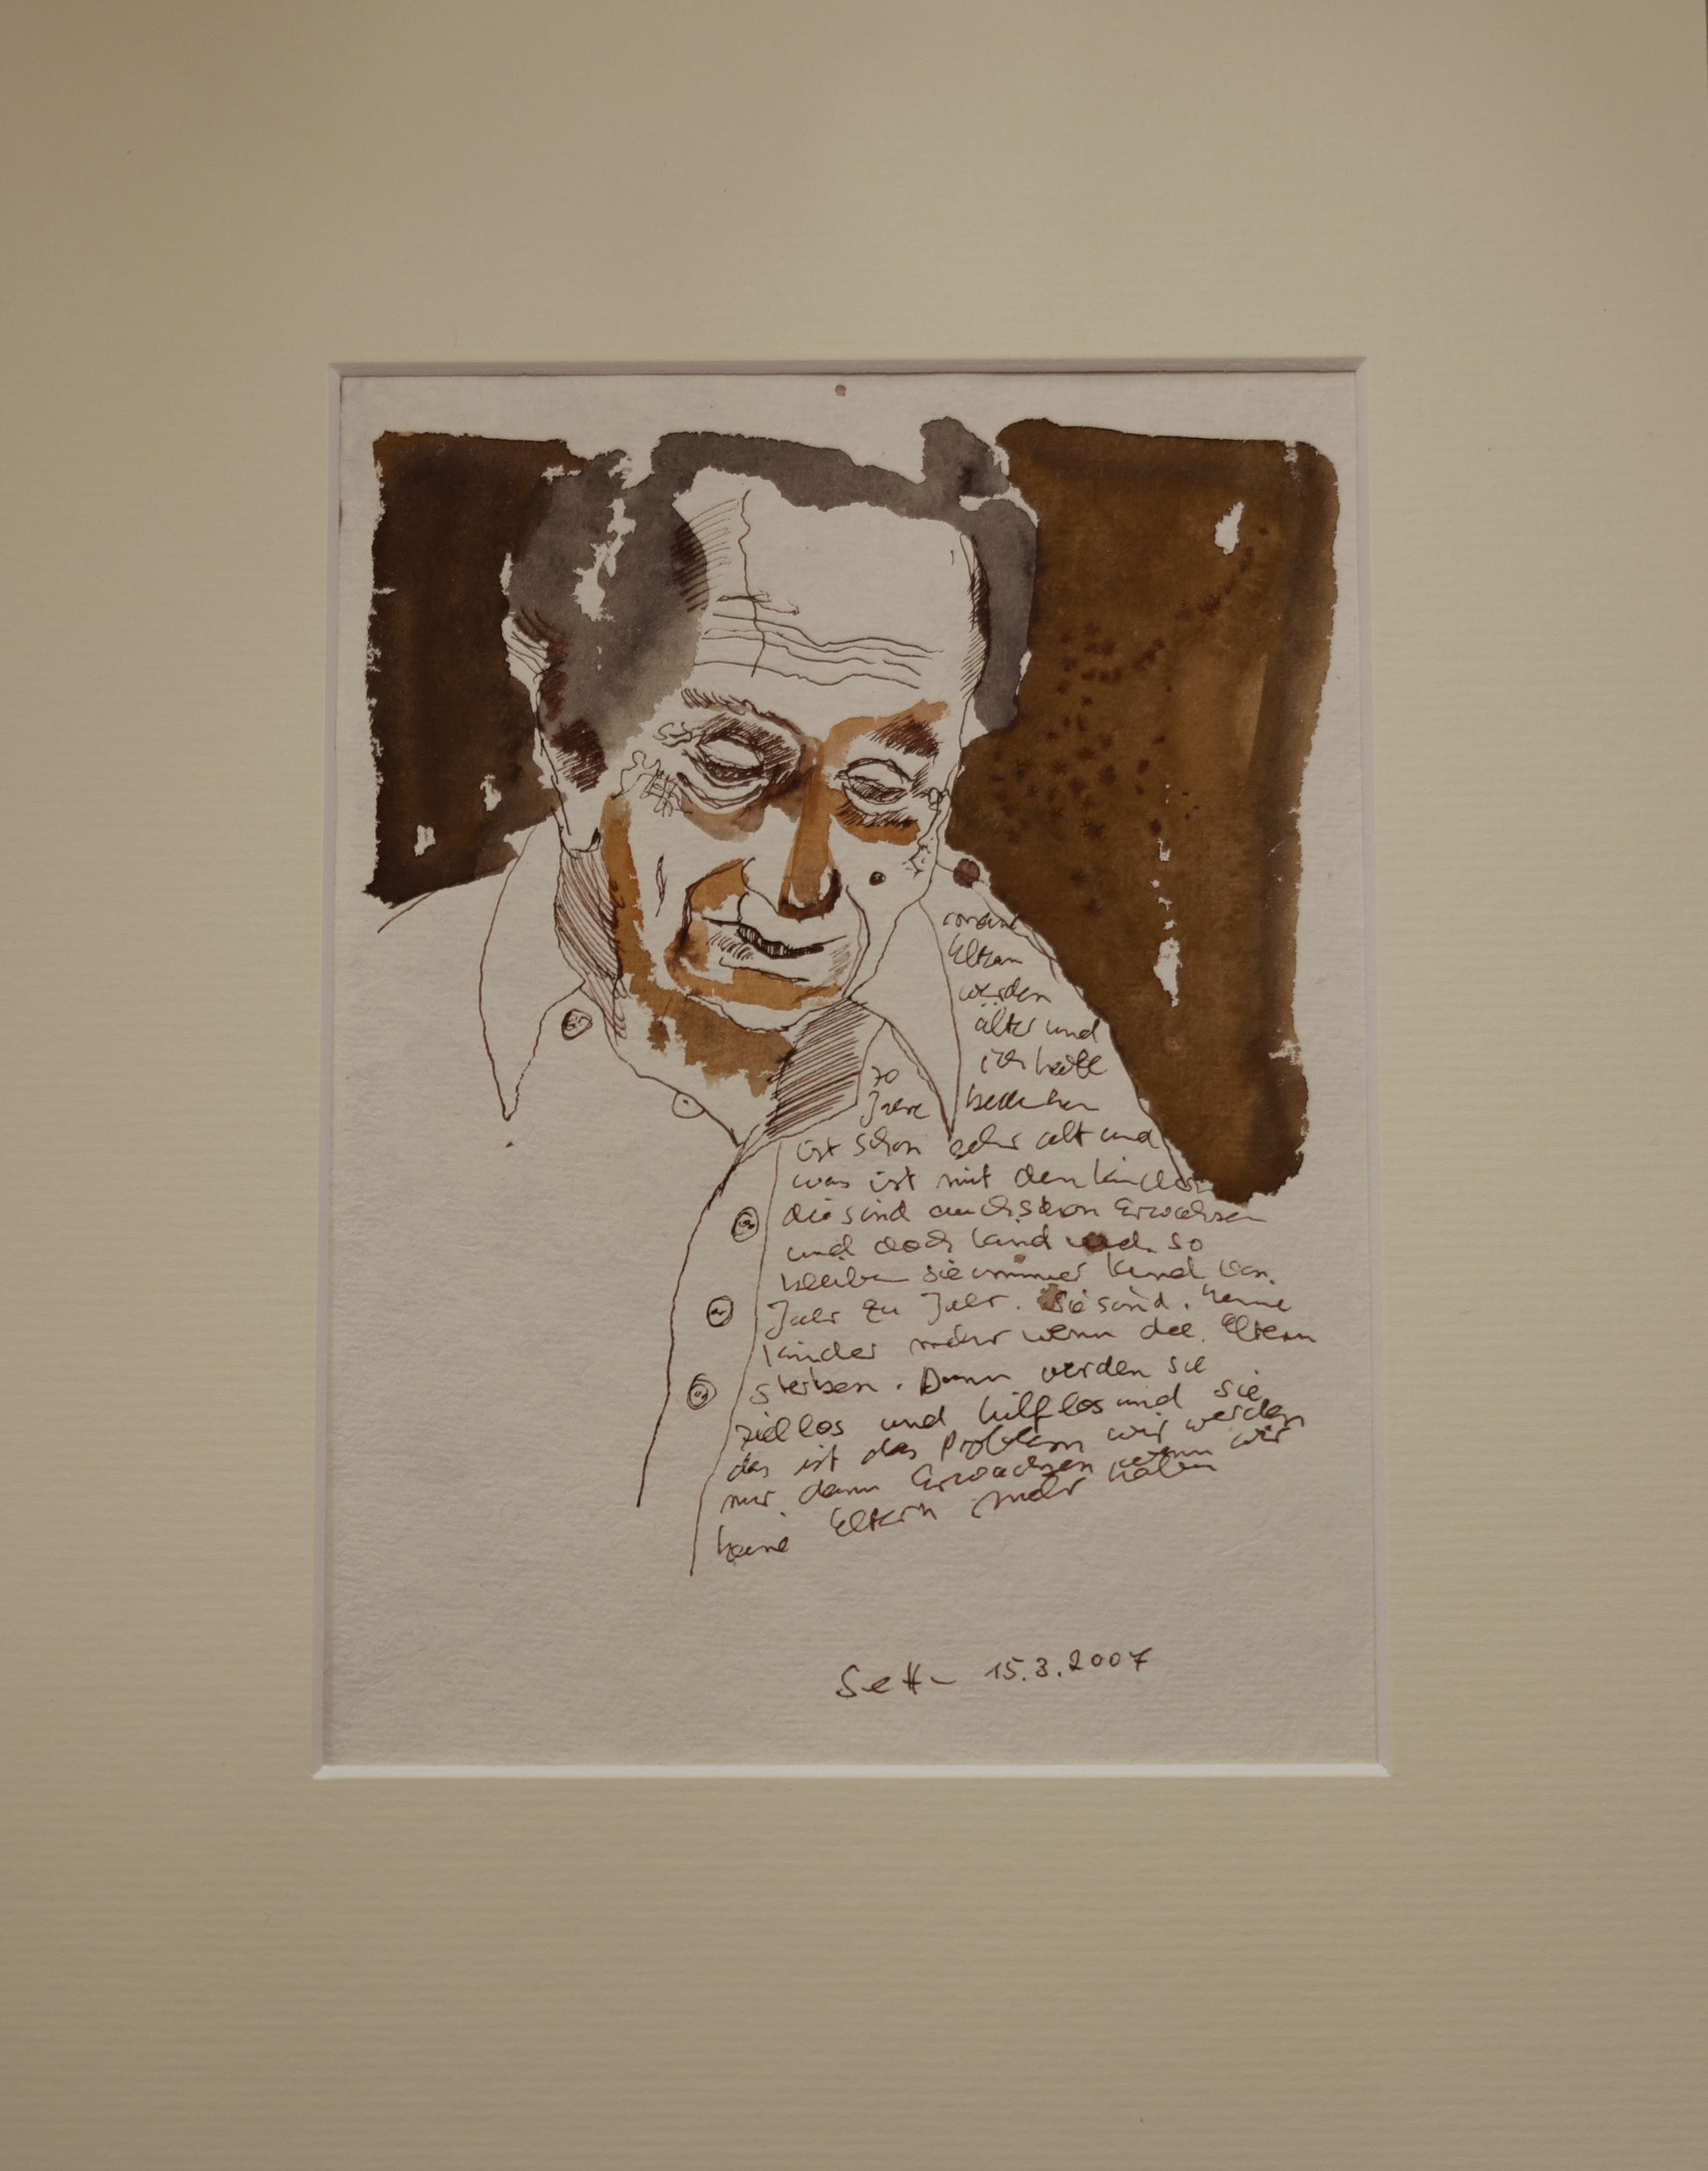 meine
Eltern
werden
älter und
ich
70
Jahre
ist schon sehr alt und
was ist mit den Kindern
die sind auch schon Erwachsen
und doch Kind und so
bleiben sie immer Kind von
Jahr zu Jahr. Sie sind keine
Kinder mehr wenn die Eltern
sterben. Dann werden sie
ziellos und hilflos und sie
das ist das Problem wir werden
nur dann Erwachsen wenn wir
keine Eltern mehr haben
15.3.2007